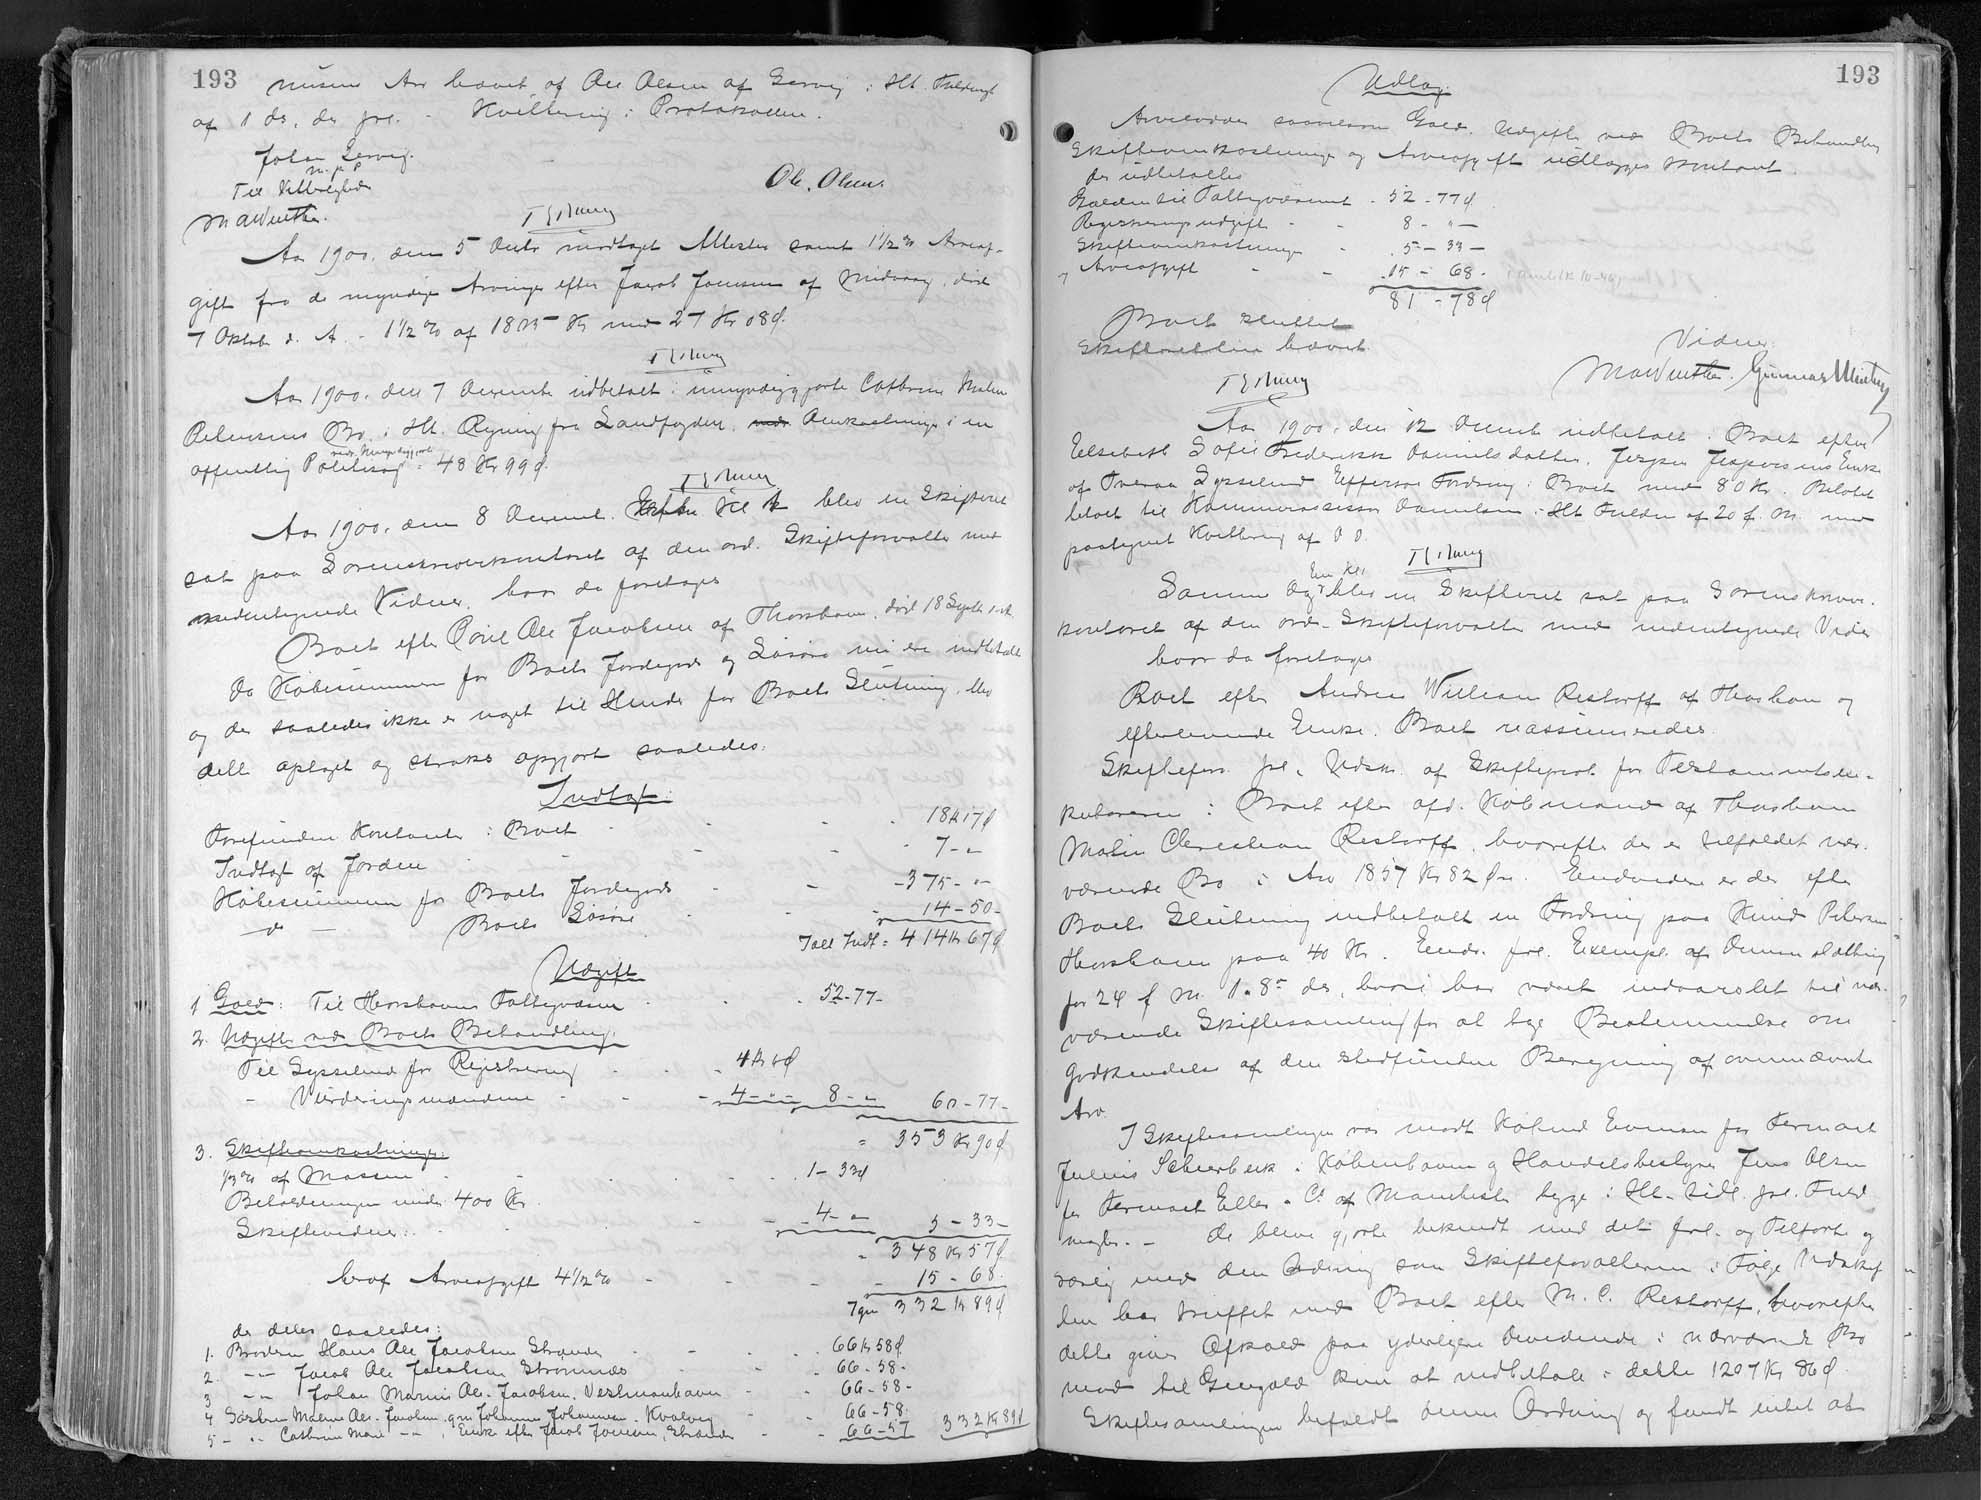 193
Arv hævet af Ole Olsen af Gervig i Hl. Fuldmagt
af 1 ds. ds. frl. - Kvittering i Protokollen.
Johan Servig.
m. p. P
Til Vitterlighed
MAWinther.
Ole. Olsen.
Aar 1900. den 5 Decbr modtaget Attester samt 1½ % Arveaf-
gift fra de myndige Arvinger efter Jacob Joensen af Midvaag, død
7 Oktob. d. A. - 1½ % af 1805 Kr med 27 Kr 08 Ø.
Aar 1900. den 7 Decembr udbetalt i umyndiggjorte Cathrine Malene
Petersens Bo i Hl. Regning fra Landfogden, Omkostninger i en
offentlig Politisag vedr. Umyndiggjort = 48 Kr 99 Ø.
Aar 1900. den 8 Decemb. Kl. blev en Skifteret
sat paa Sorenskriverkontoret af den ord. Skifteforvalter med
undertegnede Vidner, hvor da foretoges
Boet efter Poul Ole Jacobsen af Thorshavn, død 18 Septb.
Da Købesummen for Boets Jordegods og Løsøre nu ere indbetalt
og der saaledes ikke er noget til Hinder for Boets Slutning, blev
dette optaget og straks opgjort saaledes:
Indtægt:
Forefunden Kontant i Boet - 18 Kr 17 Ø
Indtægt af Jorden - 7 - "
Købesummen for Boets Jordegods - 375 - " -
do - Boets Løsøre - 14 - 50 -
Tall Indt = 414 Kr 67 Ø
Udgift
1 Gæld: Til Thorshavns Fattigvæsen - 52 - 77 -
2. Udgifter ved Boets Behandling:
Til Sysselmd for Registrering - 4 Kr 0 Ø
- Vurderingsmændene - 4 - " - 8 - " 60 - 77 -
= 353 Kr 90 Ø
3. Skifteomkostninger:
1/3 % af Massen - 1 - 33 Ø
Beholdningen under 400 Kr.
Skiftevidner: - 4 - " 5 - 33 -
- 348 Kr 57 Ø
heraf Arveafgift 4½ % - 15 - 68.
Igen 332 Kr 89 Ø
der deles saaledes:
1. Broderen Hans Ole Jacobsen Strænder - 66 Kr 58 Ø.
2. - " - Jacob Ole Jacobsen Strømnæs - 66 - 58 -
3 - " - Johan Marius Ole. Jacobsen, Vestmanhavn - 66 - 58 -
4 Søsteren Malene Ole. Jacobsen, g. m. Johannes Johannesen. Kvalvig - 66 - 58.
5 - " - Cathrine Marie - " - , Enke efter Jacob Joensen, Strænder - 66 - 57 332 Kr 89 Ø
193
Udlæg.
Arvelodder saavelsom Gæld. Udgifter ved Boets Behandling
Skifteomkostninger og Arveafgift udlægges kontant
der udbetales
Gælden til Fattigvæsenet - 52 - 77 Ø
Registreringsudgift - 8 - " -
Skifteomkostninger - 5 - 33 -
og Arveafgift - 15 - 68.
81 - 78 Ø
Boet sluttet
Skifteretten hævet.
Vidner:
MAWinther. Gunnar
Aar 1900. den 12 Decemb udbetalt i Boet efter
Elsebeth Sofie Frederikke Danielsdatter, Jesper Jespersens Enke
af Tveraa Sysselmd Effersøe Fordring i Boet med 80 Kr. Beløbet
betalt til Kammerassessor Danielsen i Hl. Fuldm af 20 f. M. med
paategnet Kvittering af D. D.
Samme Dag Em Kl. blev en Skifteret sat paa Sorenskriver-
kontoret af den ord. Skifteforvalter med undertegnede Vidner
hvor da foretoges
Boet efter Andreas William Restorff af Thorshavn og
efterlevende Enke. Boet reassumeredes.
Skifteforv. frl. Udskr. af Skifteprot. for Testamentsexe-
kutorerne i Boet efter afd. Købmand af Thorshavn
Martin Christian Restorff, hvorefter der er tilfaldet nær-
værende Bo i Arv 1857 Kr 82 Øre. Endvidere er der efter
Boets Slutning indbetalt en Fordring paa Knud Petersen
Thorshavn paa 40 Kr. Endv. frl. Exempl. af Dimmalætting
for 24 f. M. 1. 8 ds, hvori har været indvarslet til nær-
værende Skiftesamling for at tage Bestemmelse om
Godkendelse af den stedfundne Beregning af ovennævnte
Arv.
I Skiftesamlingen var mødt Købmd Evensen for Firmaet
Julius Schierbeck i København og Handelsbestyrer Jens Olsen
for Firmaet Eller & Co. af Manchester begge i Hl. tidl. frl. Fuld-
magter. - De bleve gjorte bekendt med det frl. og Tilførte og
særlig med den Ordning som Skifteforvalteren i Følge Udskrif-
ten har truffet med Boet efter M. C. Restorff, hvorefter
dette giver Afkald paa yderligere Dividende i nærværende Bo
mod til Gengæld kun at indbetale i dette 1207 Kr 86 Ø.
Skiftesamlingen befandt denne Ordning og fandt intet at